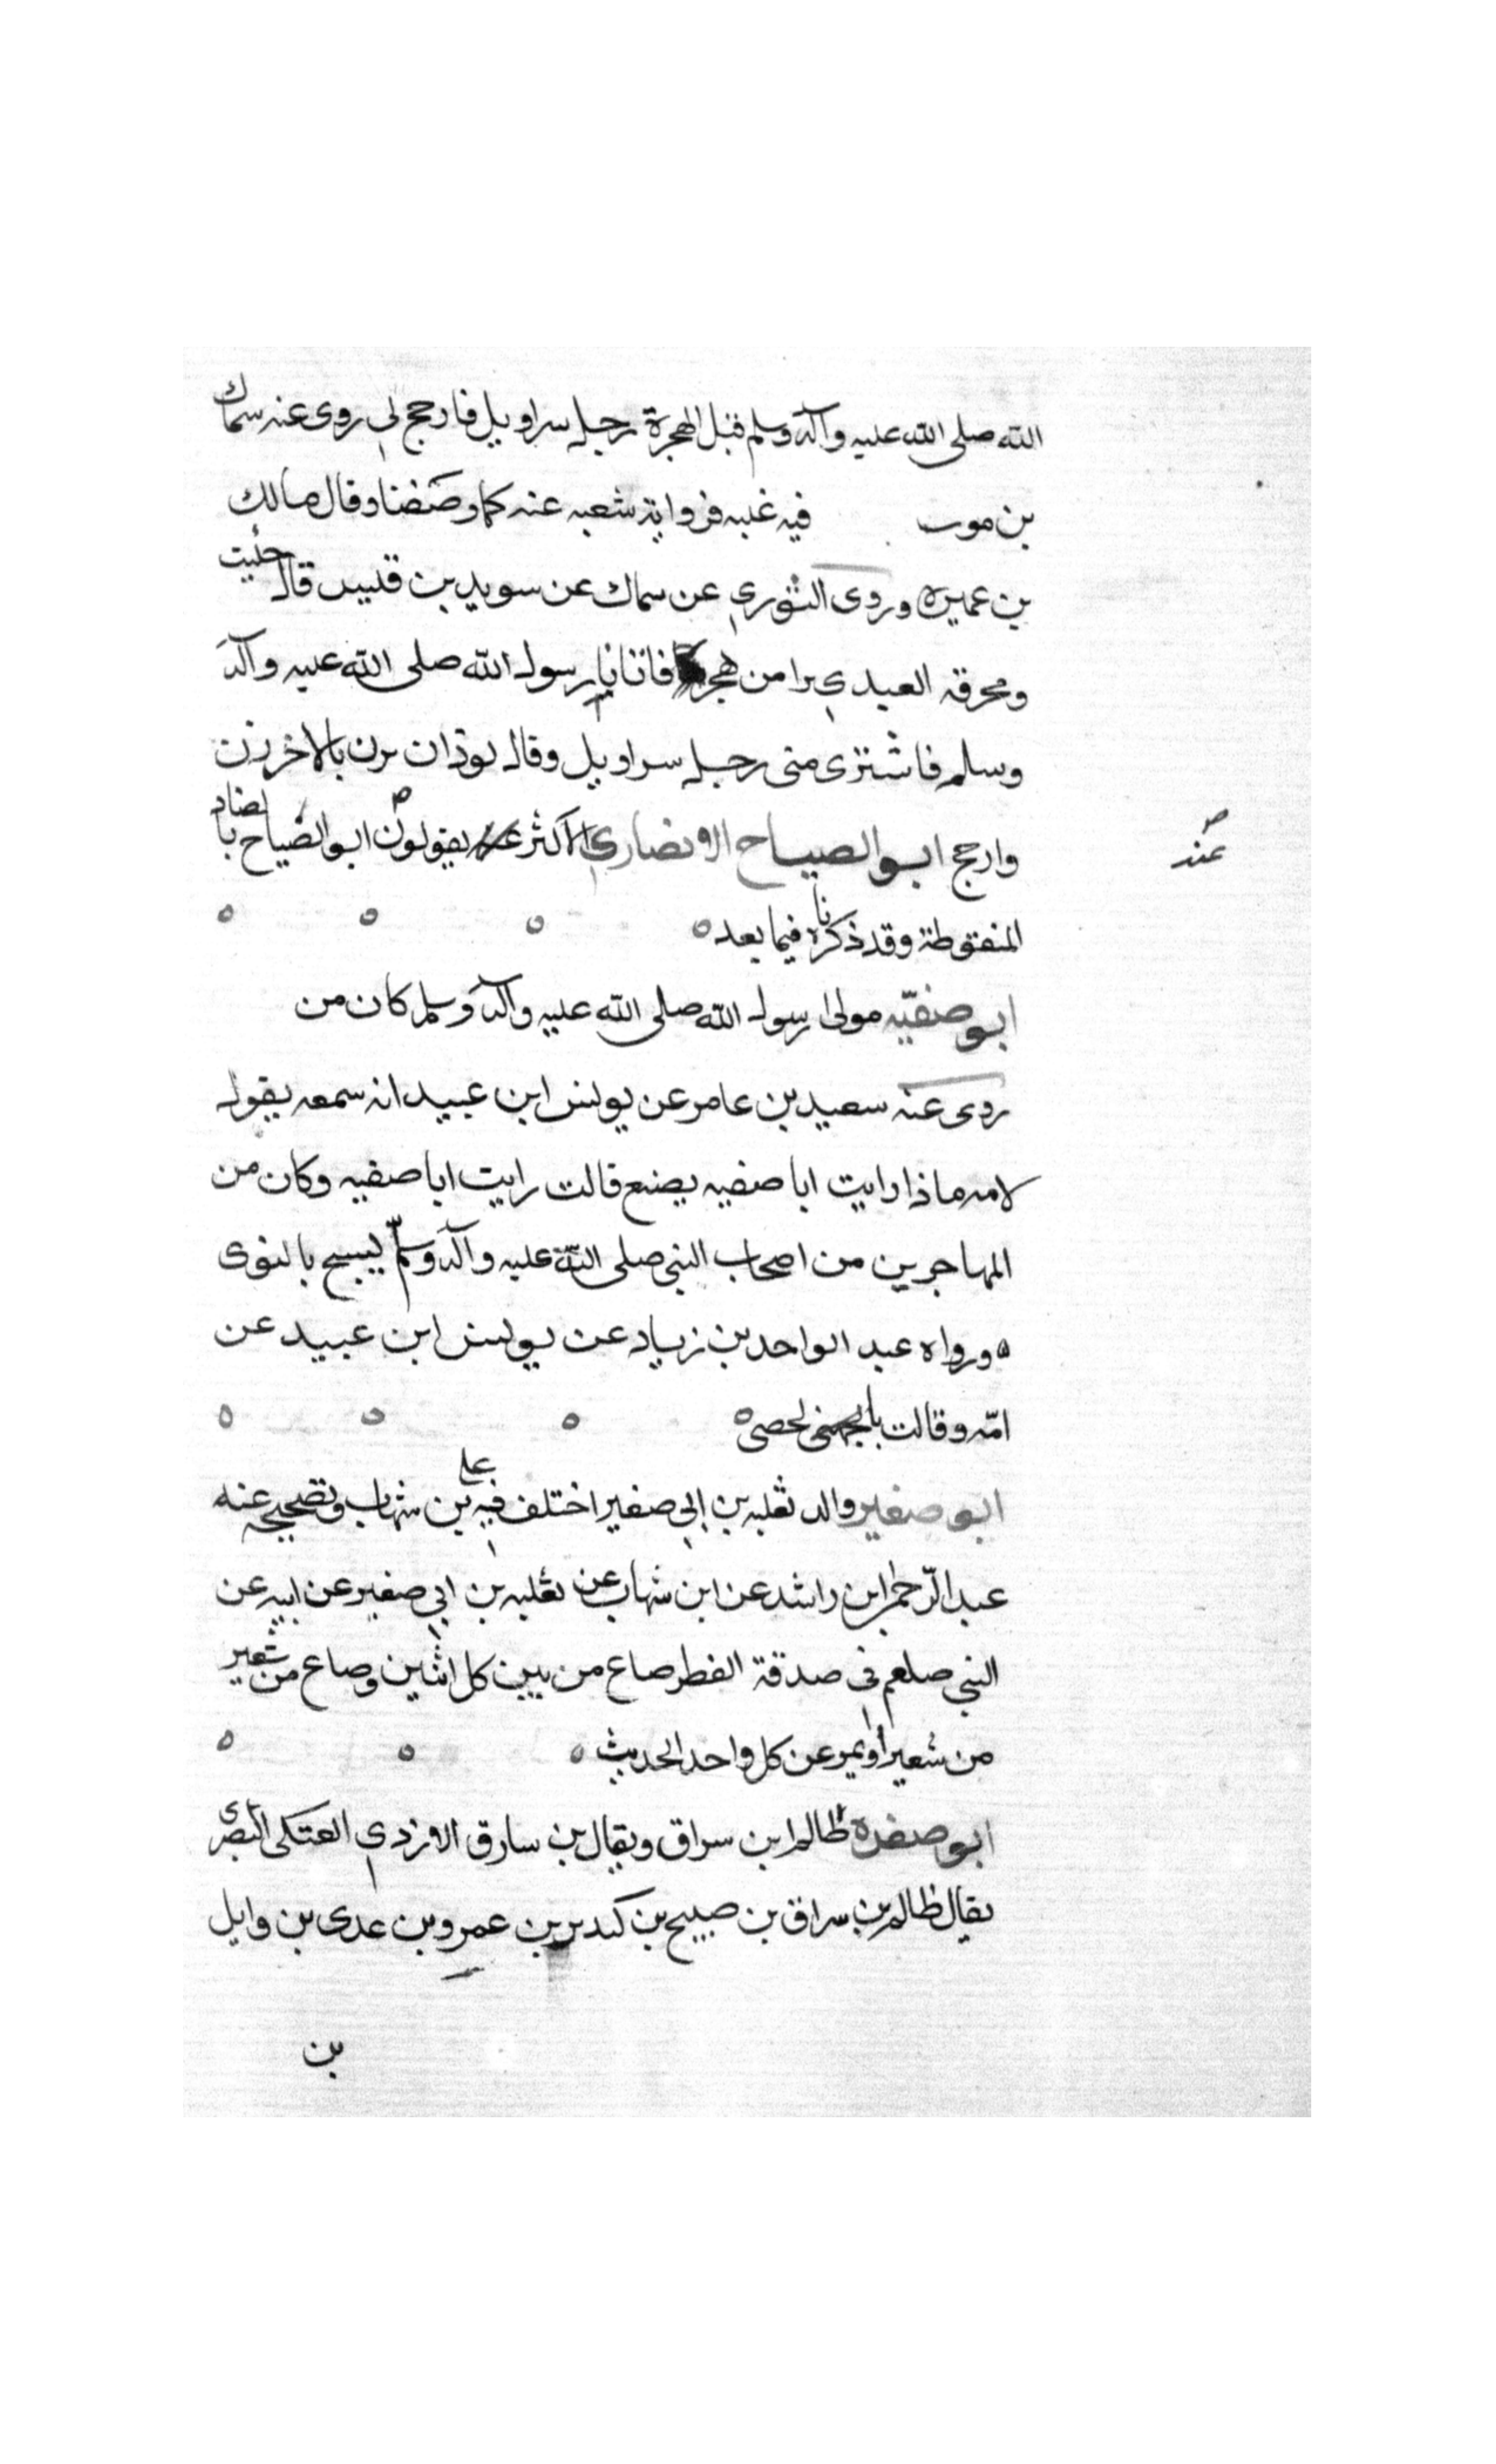 الله صلى الله عليه وآله وسلم قبل الهجرة رجل سراويل فارجح لي روى عنه سماك
بن موب فيه غلبه فروايه شعبه عنه كما وصفنا وقال مالك
بن عميره وروى الثوري عن سماك عن سويد بن قليد قال جليت
ومحرقه العبدي برا من هجر فاتانا رسول الله صلى الله عليه وآله
وسلم فاشترى منى رجل سراويل وقال لوذان يزن بالاخر زن
وارجح ابو الصياح الانصاري الاكثر يقولون ابو الضياح بالضاد
عند
المنقوطة وقد ذكرناه فيما بعد
ابو صفيّه مولى رسول الله صلى الله عليه وآله وسلم كان من
روى عنه سعيد بن عامر عن يونس ابن عبيد انه سمعه يقول
لامه ماذا رايت ابا صفيه يصنع قالت رايت ابا صفيه وكان من
المهاجرين من اصحاب النبي صلى الله عليه وآله وسلّم يسبح بالنوى
ورواه عبد الواحد بن زياد عن يونس ابن عبيد عن
امّه وقالت بالحصى
ابو صغير والد ثعلبه بن ابي صغير اختلف فيه على بن شهاب وتصحيحه عنه
عبد الرّحمن ابن راشد عن ابن شهاب عن ثعلبه بن ابي صغير عن ابيه عن
النبي صلعم في صدقة الفطر صاع من بين كل اثنين وصاع من شعير
من شعير او تمر عن كل واحد الحديث
ابو صفرة ظالم ابن سراق ويقال بن سارق الازدي العتكى البصرى
يقال ظالم بن سراق بن صبيح بن كندير بن عمرو بن عدى بن وايل
بن